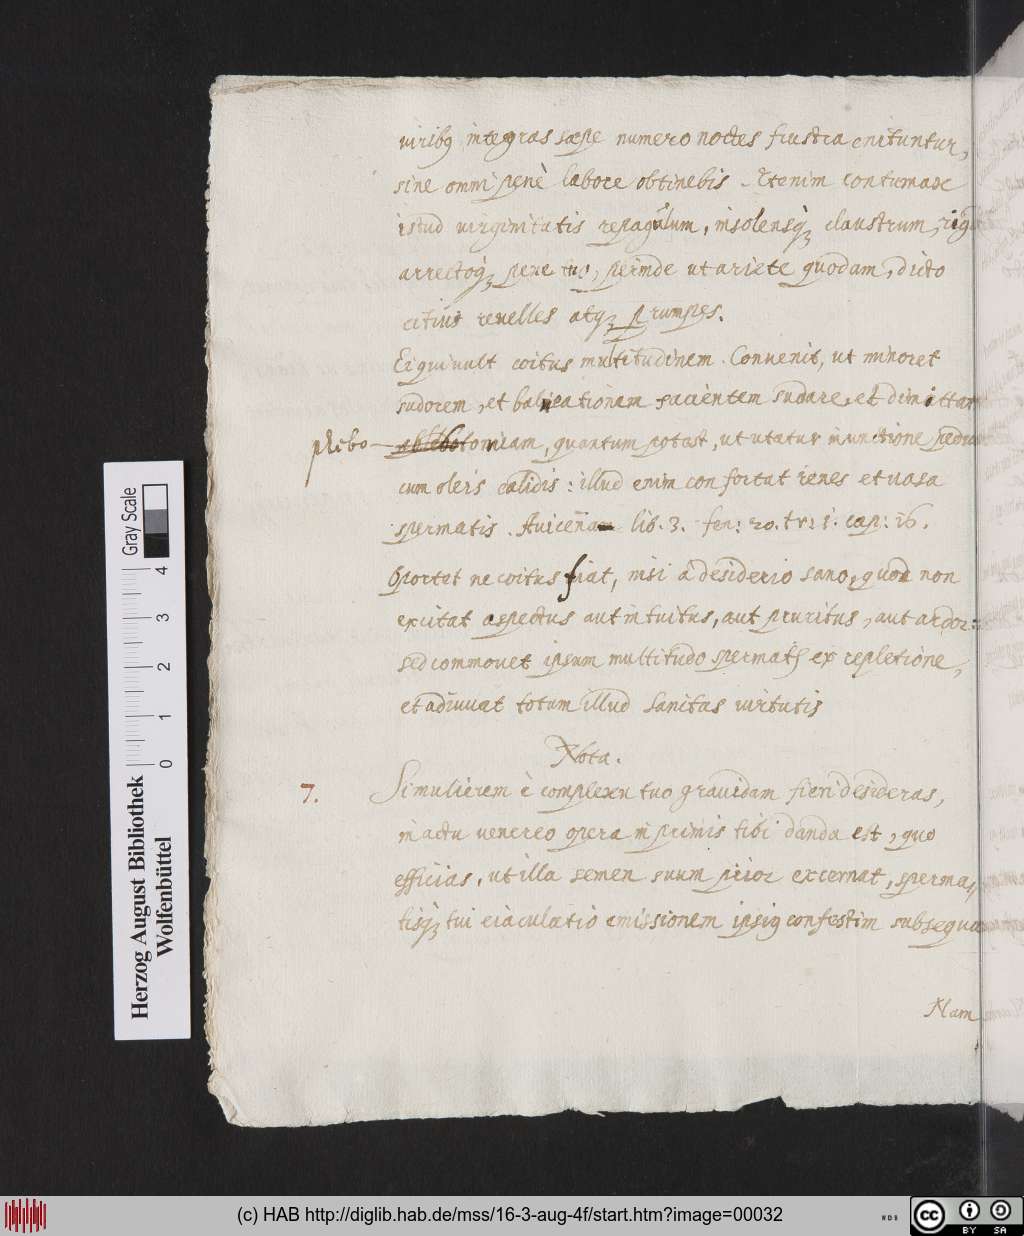 viribꝫ integras sæpe numero noctes frustra enituntur,
sine omni penè labore obtinebis. Etenim contumax
istud virginitatis repagulum, insolensqꝫ claustrum, rig
arrectoqꝫ pene tuo, perinde ut ariete quodam, dicto
citius revelles atqꝫ prrumpes.
Ei qui uult coitus multitudinem. Convenit, ut minoret
sudorem, et balneationem facientem sudare, et dimittat
phlebo- tomiam, quantum potest, ut utatur inunctione pedum
cum oleis calidis: illud enim confortat renes et uasa
spermatis. Auicena lib. 3. fen: 20. tr: 1. cap: 16.
Oportet ne coitus fiat, nisi à desiderio sano, quod non
excitat aspectus aut intuitus, aut pruritus, aut ardor:
sed commouet ipsum multitudo spermatis ex repletione,
et adiuuat totum illud sanitas uirtutis
Nota.
7. Si mulierem è complexu tuo grauidam fieri desideras,
in actu uenereo opera in primis tibi danda est, quo
efficias, ut illa semen suum prior excernat, sperma-
tisqꝫ tui eiaculatio emissionem ipsiꝫ confestim subsequa
Nam
Gray Scale
0 1 2 3 4
Herzog August Bibliothek
Wolfenbüttel
(c) HAB http://diglib.hab.de/mss/16-3-aug-4f/start.htm?image=00032
WDB
cc BY SA